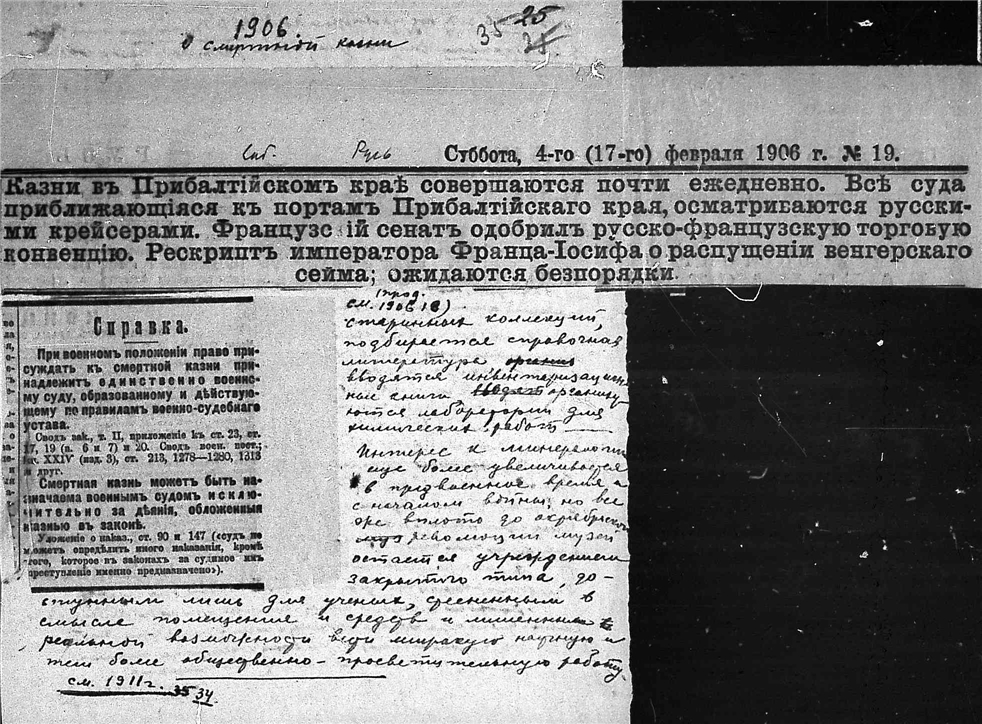 1906.
О смертной казни
35 25
Спб. Русь Суббота, 4-го (17-го) февраля 1906 г. № 19.
Казни въ Прибалтійскомъ краѣ совершаются почти ежедневно. Всѣ суда
приближающіяся къ портамъ Прибалтійскаго края, осматриваются русски-
ми крейсерами. Французс ій сенатъ одобрилъ русско-французскую торговую
конвенцію. Рескриптъ императора Франца-Іосифа о распущеніи венгерскаго
сейма; ожидаются безпорядки
Справка.
При военномъ положеніи право при-
суждать къ смертной казни при-
надлежитъ единственно военно-
му суду, образованному и дѣйствую-
щему по правиламъ военно-судебнаго
устава.
Сводъ зак., т. II, приложеніе къ ст. 23, ст.
17, 19 (п. 6 и 7) и 20. Сводъ воен. пост.;
кн. XXIV (изд. 3), ст. 213, 1278—1280, 1313
и друг.
Смертная казнь можетъ быть на-
значаема военнымъ судомъ исклю-
чительно за дѣянія, обложенныя
казнью въ законѣ.
Уложеніе о наказ., ст. 90 и 147 («судъ не
можетъ опредѣлить иного наказанія, кромѣ
того, которое въ законахъ за судимое имъ
преступленіе именно предназначено»).
(прод.
см. 1906 18)
старинных коллекций,
подбирается справочная
литература
вводятся инвентаризацион
ные книги, организу
ются лаборатории для
химических работ
Интерес к минералогии
еще более увеличивается
в предвоенное время и
с началом войны, но все
же вплоть до октябрьской
революции музей
остается учреждением
закрытого типа, до-
ступным лишь для ученых, стесненным в
смысле помещения и средств и лишенным
реальной возможности вести широкую научную и
тем более общественно-просветительную работу.
см. 1911 г. 35 34